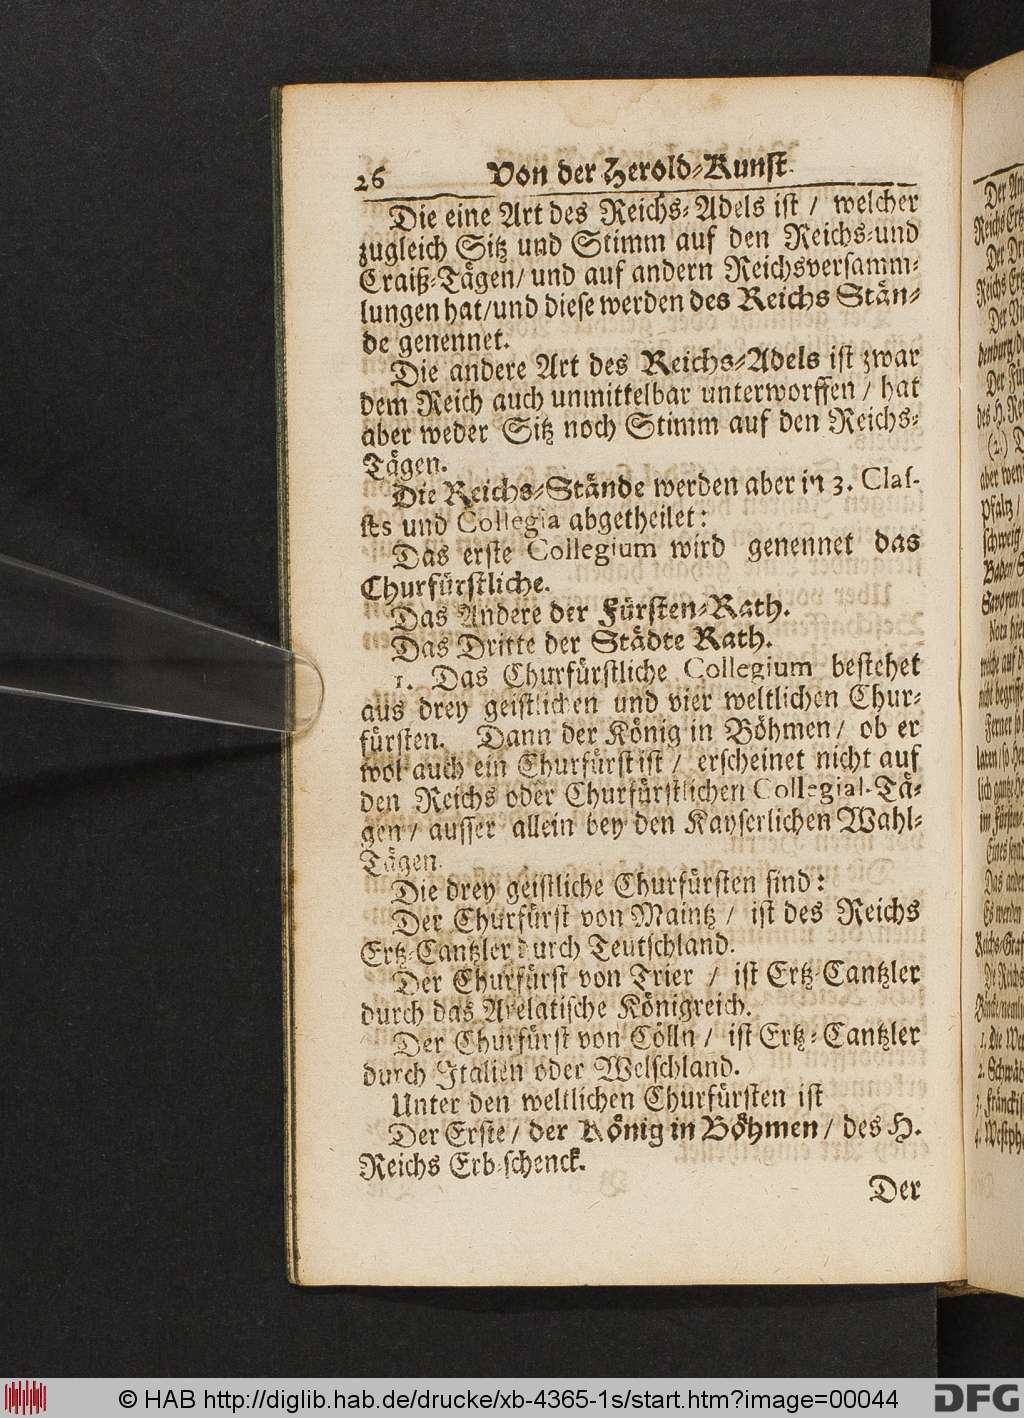 26 Von der Herold-Kunst.
Die eine Art des Reichs-Adels ist / welcher
zugleich Sitz und Stimm auf den Reichs-und
Craiß-Tägen / und auf andern Reichsversamm-
lungen hat / und diese werden des Reichs Stän-
de genennet.
Die andere Art des Reichs-Adels ist zwar
dem Reich auch unmittelbar unterworffen / hat
aber weder Sitz noch Stimm auf den Reichs-
Tägen.
Die Reichs-Stände werden aber in 3. Clas-
ses und Collegia abgetheilet:
Das erste Collegium wird genennet das
Churfürstliche.
Das Andere der Fürsten-Rath.
Das Dritte der Städte Rath.
1. Das Churfürstliche Collegium bestehet
aus drey geistlichen und vier weltlichen Chur-
fürsten. Dann der König in Böhmen / ob er
wol auch ein Churfürst ist / erscheinet nicht auf
den Reichs oder Churfürstlichen Collegial-Tä-
gen / ausser allein bey den Kayserlichen Wahl-
Tägen.
Die drey geistliche Churfürsten sind:
Der Churfürst von Maintz / ist des Reichs
Ertz-Cantzler durch Teutschland.
Der Churfürst von Trier / ist Ertz-Cantzler
durch das Arelatische Königreich.
Der Churfürst von Cölln / ist Ertz-Cantzler
durch Italien oder Welschland.
Unter den weltlichen Churfürsten ist
Der Erste / der König in Böhmen / des H.
Reichs Erb-schenck.
Der
Der
Reichs
Der
Reichs
Der
denburg
Der
des H.
(2.)
aber
Pfaltz /
Baden
Savoyen
Ferner
Das
Reichs-Graf
1. Die
2. Schwäb
3. Fränckis
4. Westph
© HAB http://diglib.hab.de/drucke/xb-4365-1s/start.htm?image=00044
DFG